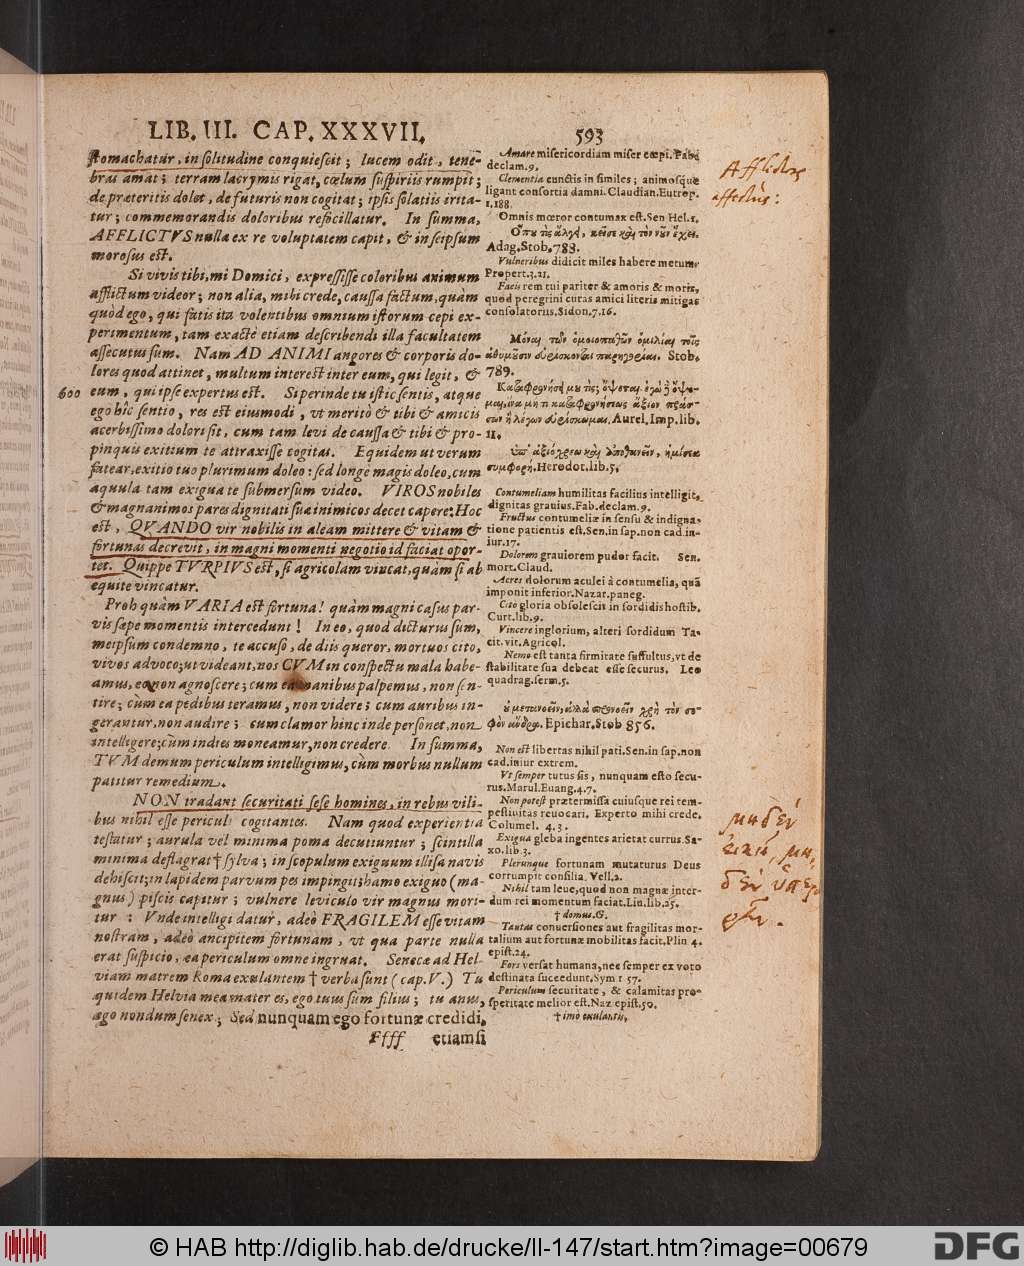 LIB. III. CAP. XXXVII. 593
stomachatur, in solitudine conquiescit; lucem odit, tene-
bras amat; terram lacrymis rigat, cœlum suspiriis rumpit;
de præteritis dolet, de futuris non cogitat; ipsis solatiis irrita-
tur; commemorandis doloribus refocillatur. In summa,
AFFLICTVS nulla ex re voluptatem capit, & in seipsum
morosus est.
Si vivis tibi, mi Domici, expressisse coloribus animum
afflictum videor; non alia, mihi crede, caussa factum, quàm
quòd ego, qui fatis ita volentibus omnium istorum cepi ex-
perimentum, tam exactè etiam describendi illa facultatem
assecutus sum. Nam AD ANIMI angores & corporis do-
lores quod attinet, multum interest inter eum, qui legit, &
600 eum, qui ipse expertus est. Si perinde tu istic sentis, atque
ego hîc sentio, res est eiusmodi, vt meritò & tibi & amicis
acerbissimo dolori sit, cum tam levi de caussa & tibi & pro-
pinquis exitium te attraxisse cogitas. Equidem ut verum
fatear, exitio tuo plurimum doleo: sed longe magis doleo, cum
aquula tam exigua te submersum video. VIROS nobiles
& magnanimos pares dignitati suæ inimicos decet capere: Hoc
est, QVANDO vir nobilis in aleam mittere & vitam &
fortunas decrevit, in magni momenti negotio id faciat opor-
tet. Quippe TVRPIVS est, si agricolam vincat, quàm si ab
equite vincatur.
Proh quàm VARIA est fortuna! quàm magni casus par-
vis sæpe momentis intercedunt! In eo, quod dicturus sum,
meipsum condemno, te accuso, de diis queror, mortuos cito,
vivos advoco; ut videant, nos CVM in conspectu mala habe-
amus, ea non agnoscere; cum ea manibus palpemus, non sen-
tire; cùm ea pedibus teramus, non videre; cum auribus in-
gerantur, non audire; cum clamor hinc inde personet, non
intelligere; cùm indies moneamur, non credere. In summa,
TVM demum periculum intelligimus, cùm morbus nullum
patitur remedium.
NON tradant securitati sese homines, in rebus vili-
bus nihil esse periculi cogitantes. Nam quod experientia
testatur; aurula vel minima poma decutiuntur; scintilla
minima deflagrat † sylva; in scopulum exiguum illisa navis
dehiscit; in lapidem parvum pes impingit; hamo exiguo (ma-
gnus) piscis capitur; vulnere leviculo vir magnus mori-
tur: Vnde intelligi datur, adeò FRAGILEM esse vitam
nostram, adeò ancipitem fortunam, vt qua parte nulla
erat suspicio, ea periculum omne ingruat. Seneca ad Hel-
viam matrem Roma exulantem † verba sunt (cap. V.) Tu
quidem Helvia mea mater es, ego tuus sum filius; tu anus,
ego nondum senex; Sed nunquam ego fortunæ credidi,
Ffff etiamsi
Amare misericordiam miser cœpi. Fab.
declam. 9.
Clementia cunctis in similes; animosque
ligant consortia damni. Claudian. Eutrop.
1.188.
Omnis mœror contumax est. Sen Hel. 1.
Ὅπου τὶς ἀλγεῖ, κεῖσε καὶ τὸν νοῦν ἔχει.
Adag. Stob. 783.
Vulneribus didicit miles habere metum.
Propert. 3.21.
Facis rem tui pariter & amoris & moris,
quod peregrini curas amici literis mitigas
consolatoriis. Sidon. 7.16.
Stob.
789.
Aurel. Imp. lib.
11.
συμφορῇ. Herodot. lib. 5.
Contumeliam humilitas facilius intelligit,
dignitas grauius. Fab. declam. 9.
Fructus contumeliæ in sensu & indigna-
tione patientis est. Sen. in sap. non cad. in-
iur. 17.
Dolorem grauiorem pudor facit. Sen.
mort. Claud.
Acres dolorum aculei à contumelia, quã
imponit inferior. Nazar. paneg.
Cito gloria obsolescit in sordidis hostib.
Curt. lib. 9.
Vincere inglorium, alteri sordidum Ta-
cit. vit. Agricol.
Nemo est tanta firmitate suffultus, vt de
stabilitate sua debeat esse securus. Leo
quadrag. serm. 5.
οὐ μετανοεῖν, ἀλλὰ προνοεῖν χρὴ τὸν σο-
φὸν ἄνδρα. Epichar. Stob 856.
Non est libertas nihil pati. Sen. in sap. non
cad. iniur extrem.
Vt semper tutus sis, nunquam esto secu-
rus. Marul. Euang. 4.7.
Non potest prætermissa cuiusque rei tem-
pestiuitas reuocari. Experto mihi crede.
Columel. 4.3.
Exigua gleba ingentes arietat currus. Sa-
xo. lib. 3.
Plerunque fortunam mutaturus Deus
corrumpit consilia. Vell. 2.
Nihil tam leue, quod non magnæ inter-
dum rei momentum faciat. Liu. lib. 25.
† domus. G.
Tantas conuersiones aut fragilitas mor-
talium aut fortunæ mobilitas facit. Plin 4.
epist. 24.
Fors versat humana, nec semper ex voto
destinata succedunt. Sym 1 57.
Periculum securitate, & calamitas pro-
speritate melior est. Naz epist. 50.
† imò exulantis.
Afflictus
affectus:
μηδὲν
εἰκῆ, μη-
δὲν ὑπερ
© HAB http://diglib.hab.de/drucke/ll-147/start.htm?image=00679
DFG